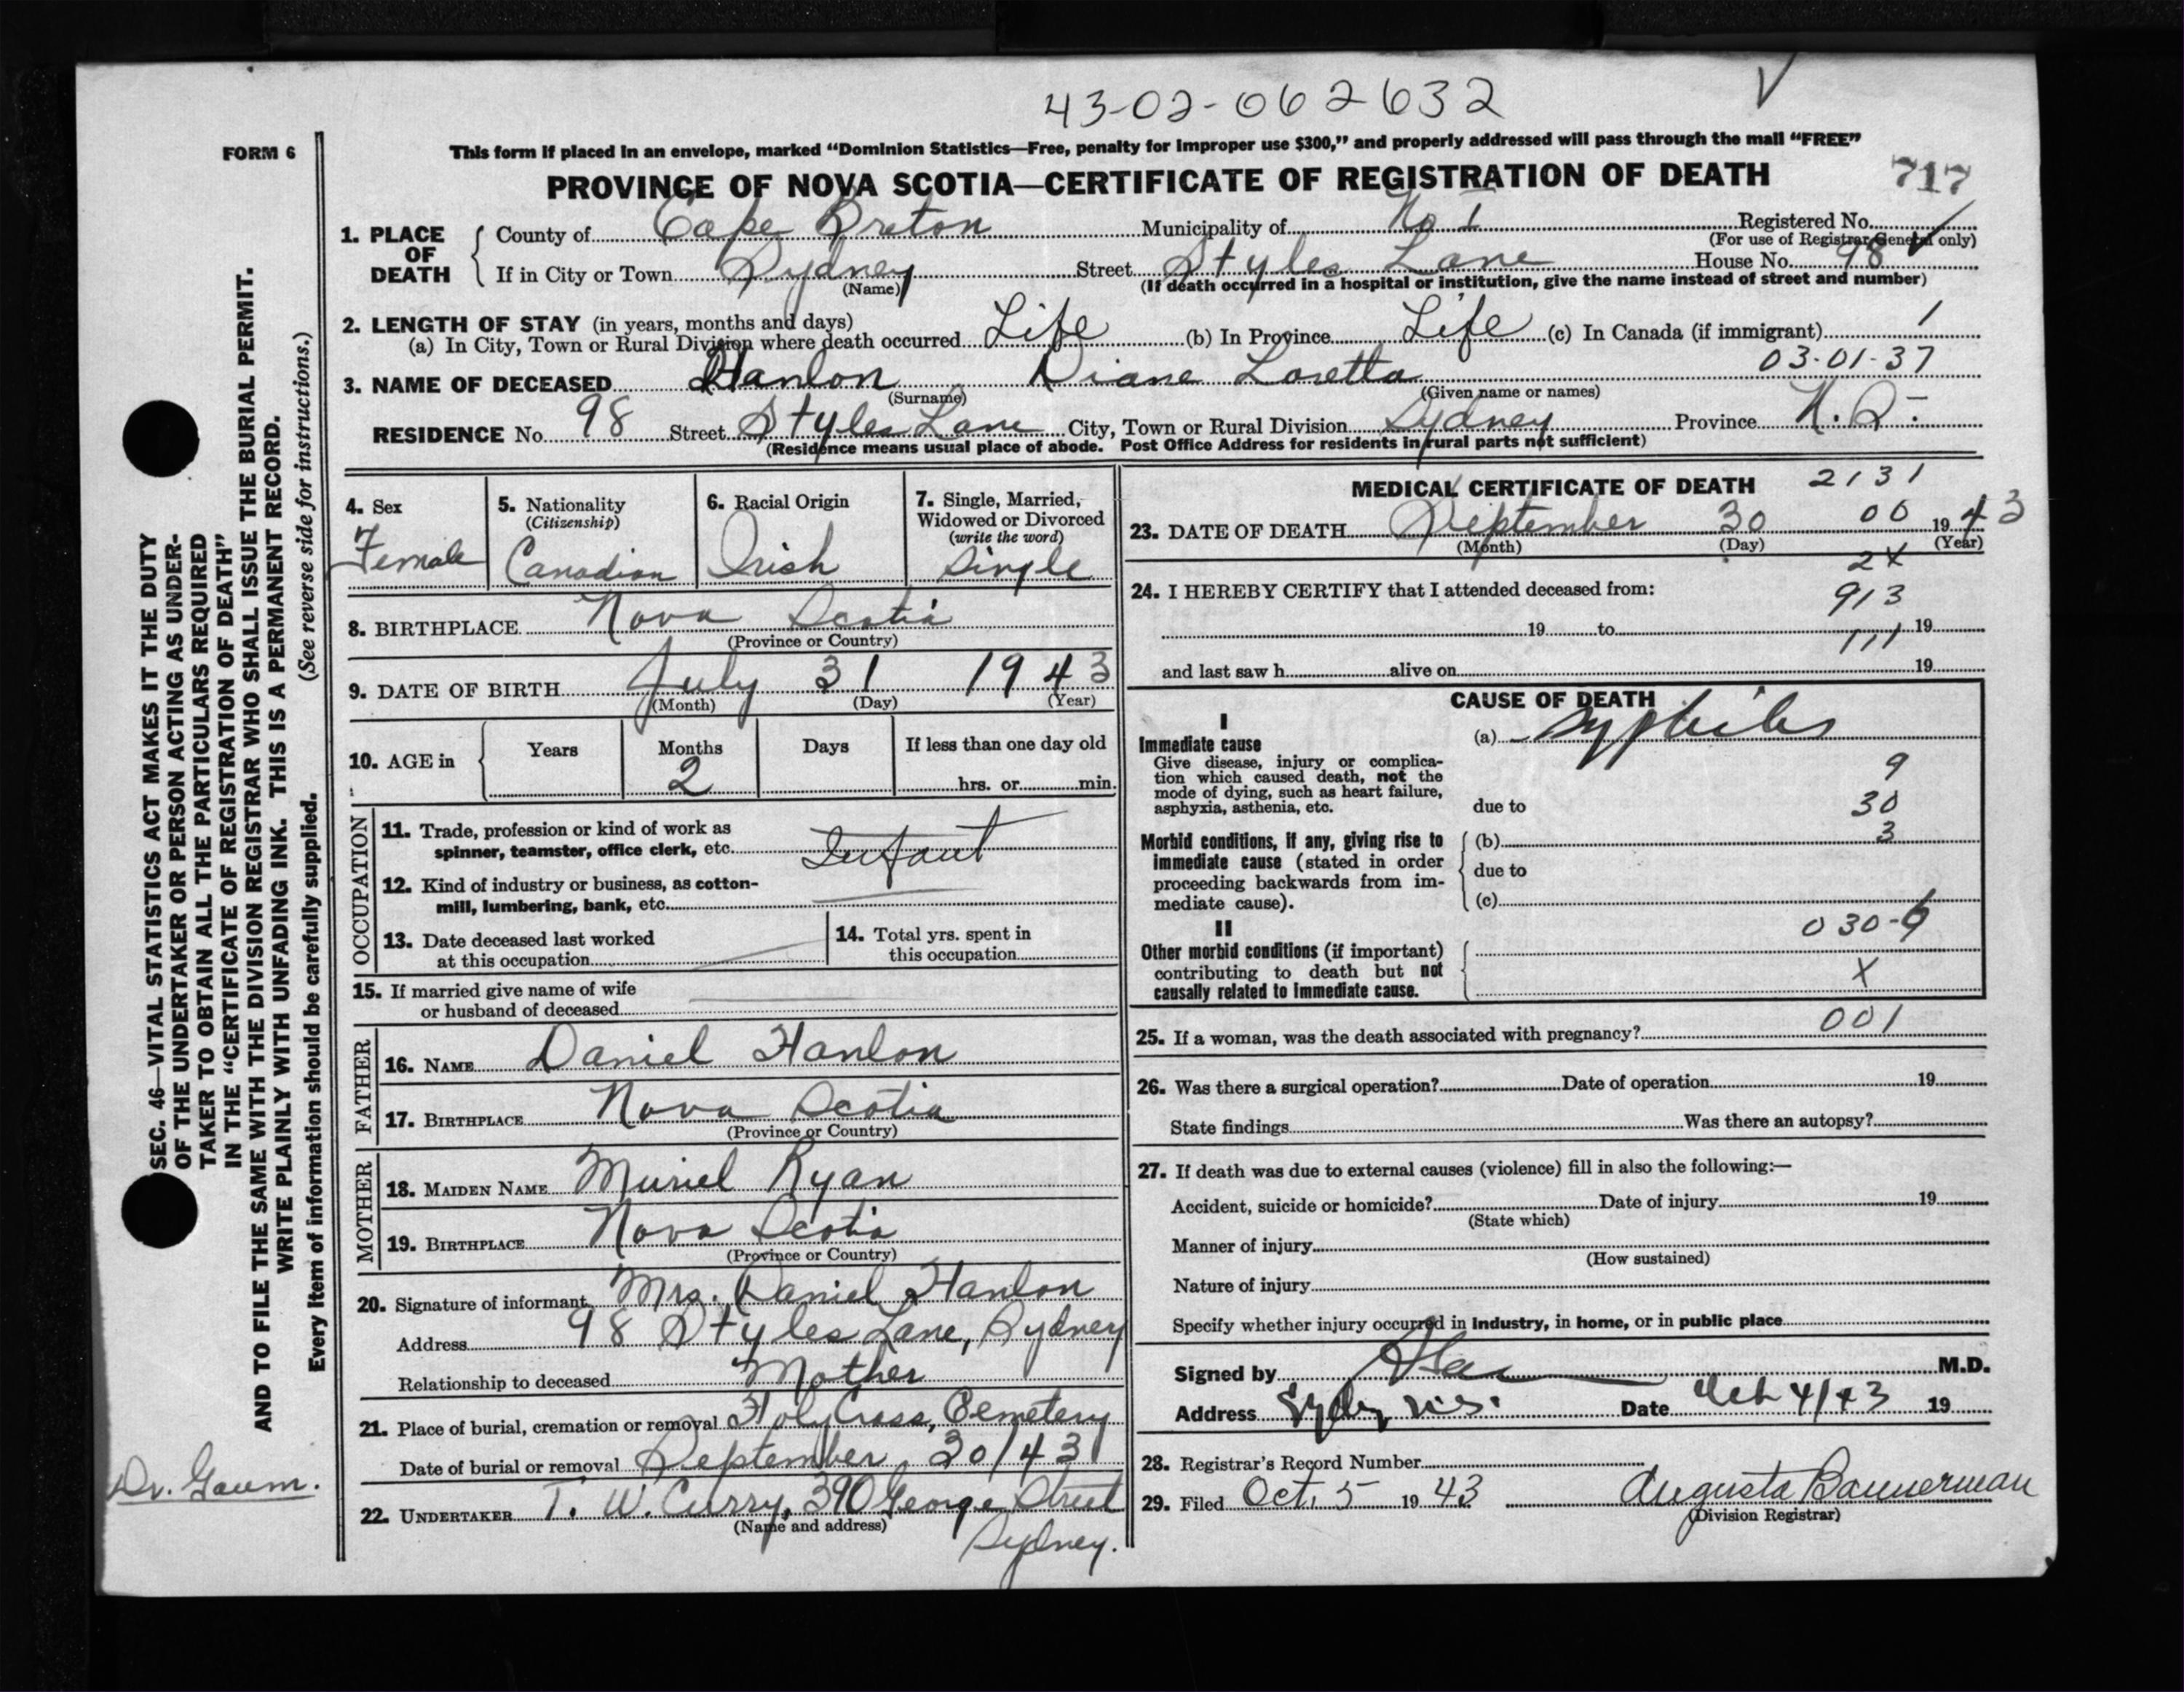 43-02-062632
FORM 6
This form if placed in an envelope, marked “Dominion Statistics—Free, penalty for improper use $300,” and properly addressed will pass through the mail “FREE”
PROVINCE OF NOVA SCOTIA—CERTIFICATE OF REGISTRATION OF DEATH
717
1. PLACE OF DEATH
County of Cape Breton Municipality of No 1 Registered No.
(For use of Registrar General only)
If in City or Town Sydney Street Styles Lane House No. 98
(Name) (If death occurred in a hospital or institution, give the name instead of street and number)
2. LENGTH OF STAY (in years, months and days)
(a) In City, Town or Rural Division where death occurred Life (b) In Province Life (c) In Canada (if immigrant) 1
03-01-37
3. NAME OF DECEASED Hanlon Diane Loretta
(Surname) (Given name or names)
RESIDENCE No. 98 Street Styles Lane City, Town or Rural Division Sydney Province N.S.
(Residence means usual place of abode. Post Office Address for residents in rural parts not sufficient)
4. Sex
Female
5. Nationality
(Citizenship)
Canadian
6. Racial Origin
Irish
7. Single, Married,
Widowed or Divorced
(write the word)
Single
8. BIRTHPLACE Nova Scotia
(Province or Country)
9. DATE OF BIRTH July 31 1943
(Month) (Day) (Year)
10. AGE in Years Months Days If less than one day old
2 hrs. or min.
OCCUPATION
11. Trade, profession or kind of work as
spinner, teamster, office clerk, etc. Infant
12. Kind of industry or business, as cotton-
mill, lumbering, bank, etc.
13. Date deceased last worked
at this occupation
14. Total yrs. spent in
this occupation
15. If married give name of wife
or husband of deceased
FATHER
16. NAME Daniel Hanlon
17. BIRTHPLACE Nova Scotia
(Province or Country)
MOTHER
18. MAIDEN NAME Muriel Ryan
19. BIRTHPLACE Nova Scotia
(Province or Country)
20. Signature of informant Mrs. Daniel Hanlon
Address 98 Styles Lane, Sydney
Relationship to deceased Mother
21. Place of burial, cremation or removal Holy Cross, Cemetery
Date of burial or removal September 30/43
22. UNDERTAKER T. W. Curry, 390 George Street
(Name and address) Sydney.
MEDICAL CERTIFICATE OF DEATH 2131
23. DATE OF DEATH September 30 00 1943
(Month) (Day) (Year)
2X
24. I HEREBY CERTIFY that I attended deceased from:
913
19 to 19
111
and last saw h alive on 19
CAUSE OF DEATH
I
Immediate cause
Give disease, injury or complica-
tion which caused death, not the
mode of dying, such as heart failure,
asphyxia, asthenia, etc.
(a) Syphilis
9
due to 30
Morbid conditions, if any, giving rise to
immediate cause (stated in order
proceeding backwards from im-
mediate cause).
(b) 3
due to
(c)
II
Other morbid conditions (if important)
contributing to death but not
causally related to immediate cause.
030-9
X
25. If a woman, was the death associated with pregnancy? 001
26. Was there a surgical operation? Date of operation 19
State findings Was there an autopsy?
27. If death was due to external causes (violence) fill in also the following:—
Accident, suicide or homicide? Date of injury 19
(State which)
Manner of injury
(How sustained)
Nature of injury
Specify whether injury occurred in industry, in home, or in public place
Signed by M.D.
Address Sydney N.S. Date 4/43 19
28. Registrar's Record Number
29. Filed Oct. 5 1943 Augusta Bannerman
(Division Registrar)
SEC. 46—VITAL STATISTICS ACT MAKES IT THE DUTY
OF THE UNDERTAKER OR PERSON ACTING AS UNDER-
TAKER TO OBTAIN ALL THE PARTICULARS REQUIRED
IN THE “CERTIFICATE OF REGISTRATION OF DEATH”
AND TO FILE THE SAME WITH THE DIVISION REGISTRAR WHO SHALL ISSUE THE BURIAL PERMIT.
WRITE PLAINLY WITH UNFADING INK. THIS IS A PERMANENT RECORD.
Every item of information should be carefully supplied. (See reverse side for instructions.)
Dr. Gaum.